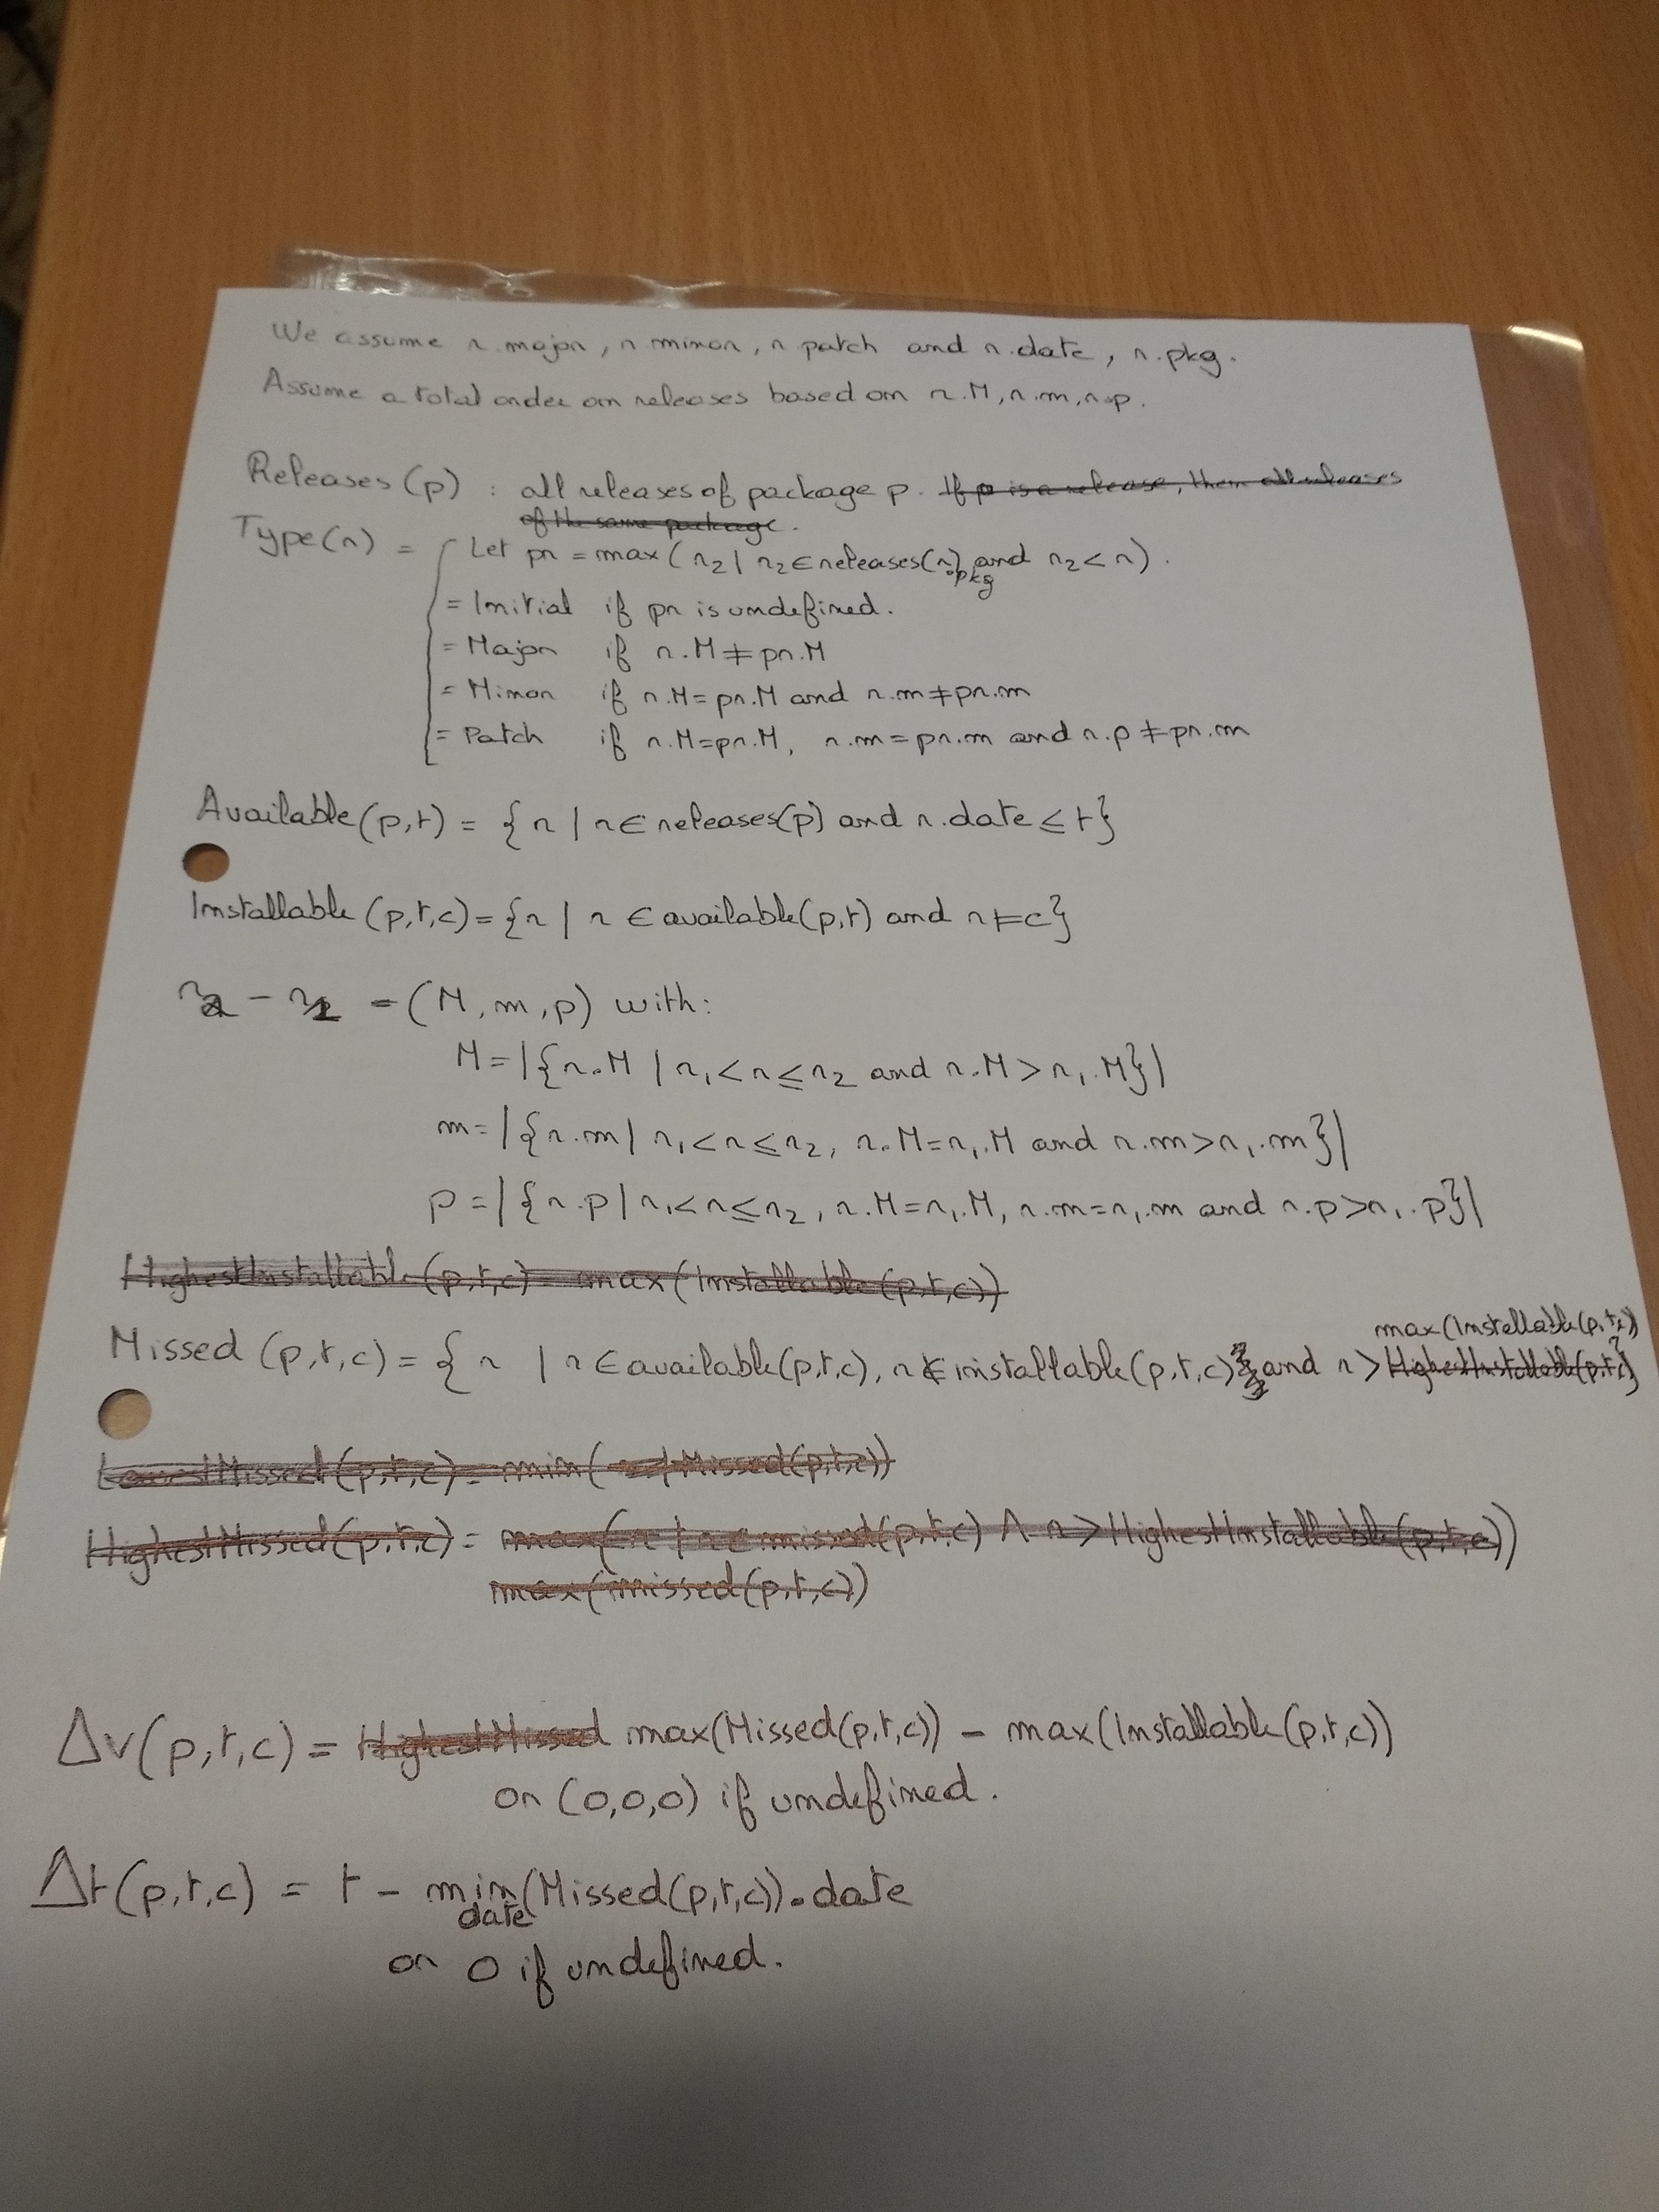 We assume r.major, r minor, r patch and r.date, r.pkg.
Assume a total order on releases based on r.M, r.m, r.p.
Releases (p) : all releases of package p. If p is a release, then all releases
of the same package.
Type(r) = { Let pr = max ( r₂ | r₂ ∈ releases(r.pkg) and r₂ < r ) .
= Initial if pr is undefined.
= Major if r.M ≠ pr.M
= Minor if r.M = pr.M and r.m ≠ pr.m
= Patch if r.M = pr.M, r.m = pr.m and r.p ≠ pr.m
Available (p,t) = { r | r ∈ releases(p) and r.date ≤ t }
Installable (p,t,c) = { r | r ∈ available(p,t) and r ⊨ c }
r₂ - r₁ = (M, m, p) with:
M = |{ r.M | r₁ < r ≤ r₂ and r.M > r₁.M }|
m = |{ r.m | r₁ < r ≤ r₂, r.M = r₁.M and r.m > r₁.m }|
p = |{ r.p | r₁ < r ≤ r₂, r.M = r₁.M, r.m = r₁.m and r.p > r₁.p }|
HighestInstallable (p,t,c) = max (Installable (p,t,c))
max (Installable (p,t,c))
Missed (p,t,c) = { r | r ∈ available(p,t,c), r ∉ installable(p,t,c) and r > HighestInstallable(p,t,c) }
LowestMissed (p,t,c) = min ( Missed(p,t,c))
HighestMissed (p,t,c) = max ( r | r ∈ missed(p,t,c) ∧ r > HighestInstallable (p,t,c))
max (missed(p,t,c))
Δv(p,t,c) = HighestMissed max(Missed(p,t,c)) - max(Installable(p,t,c))
or (0,0,0) if undefined.
Δt(p,t,c) = t - min (Missed(p,t,c)).date
date
or 0 if undefined.